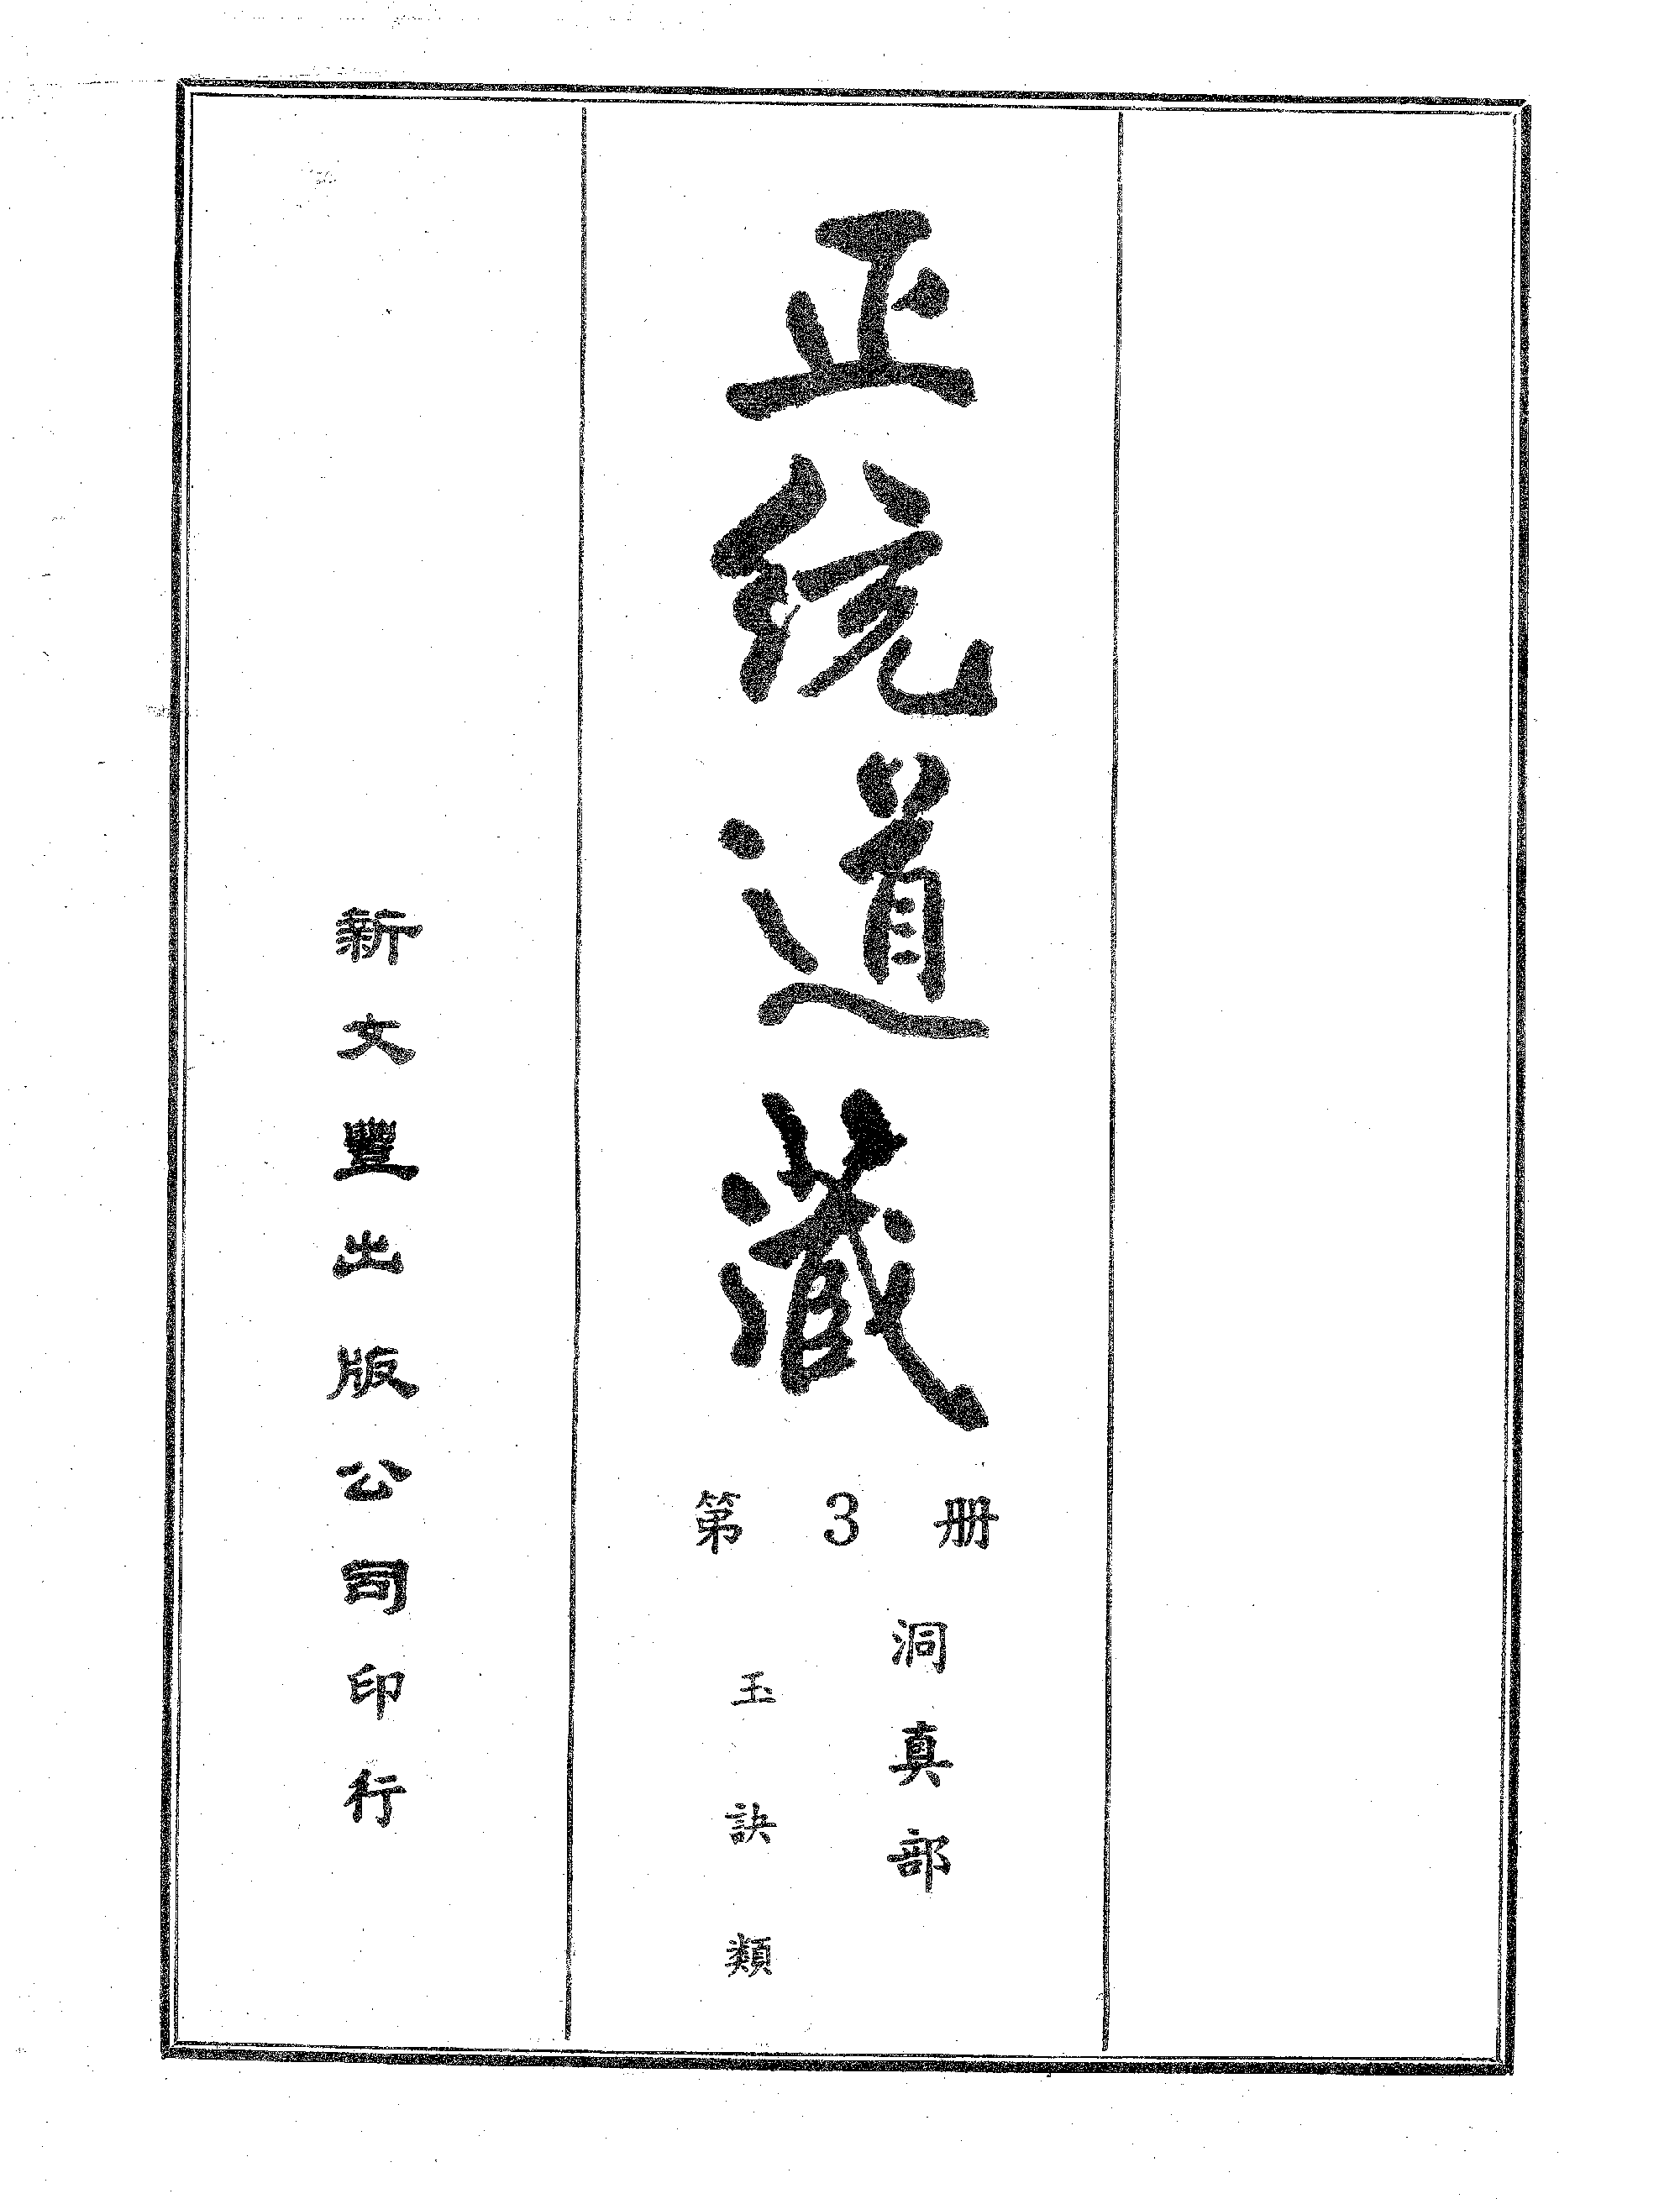 正統道藏
第3册
洞真部
玉訣類
新文豐出版公司印行